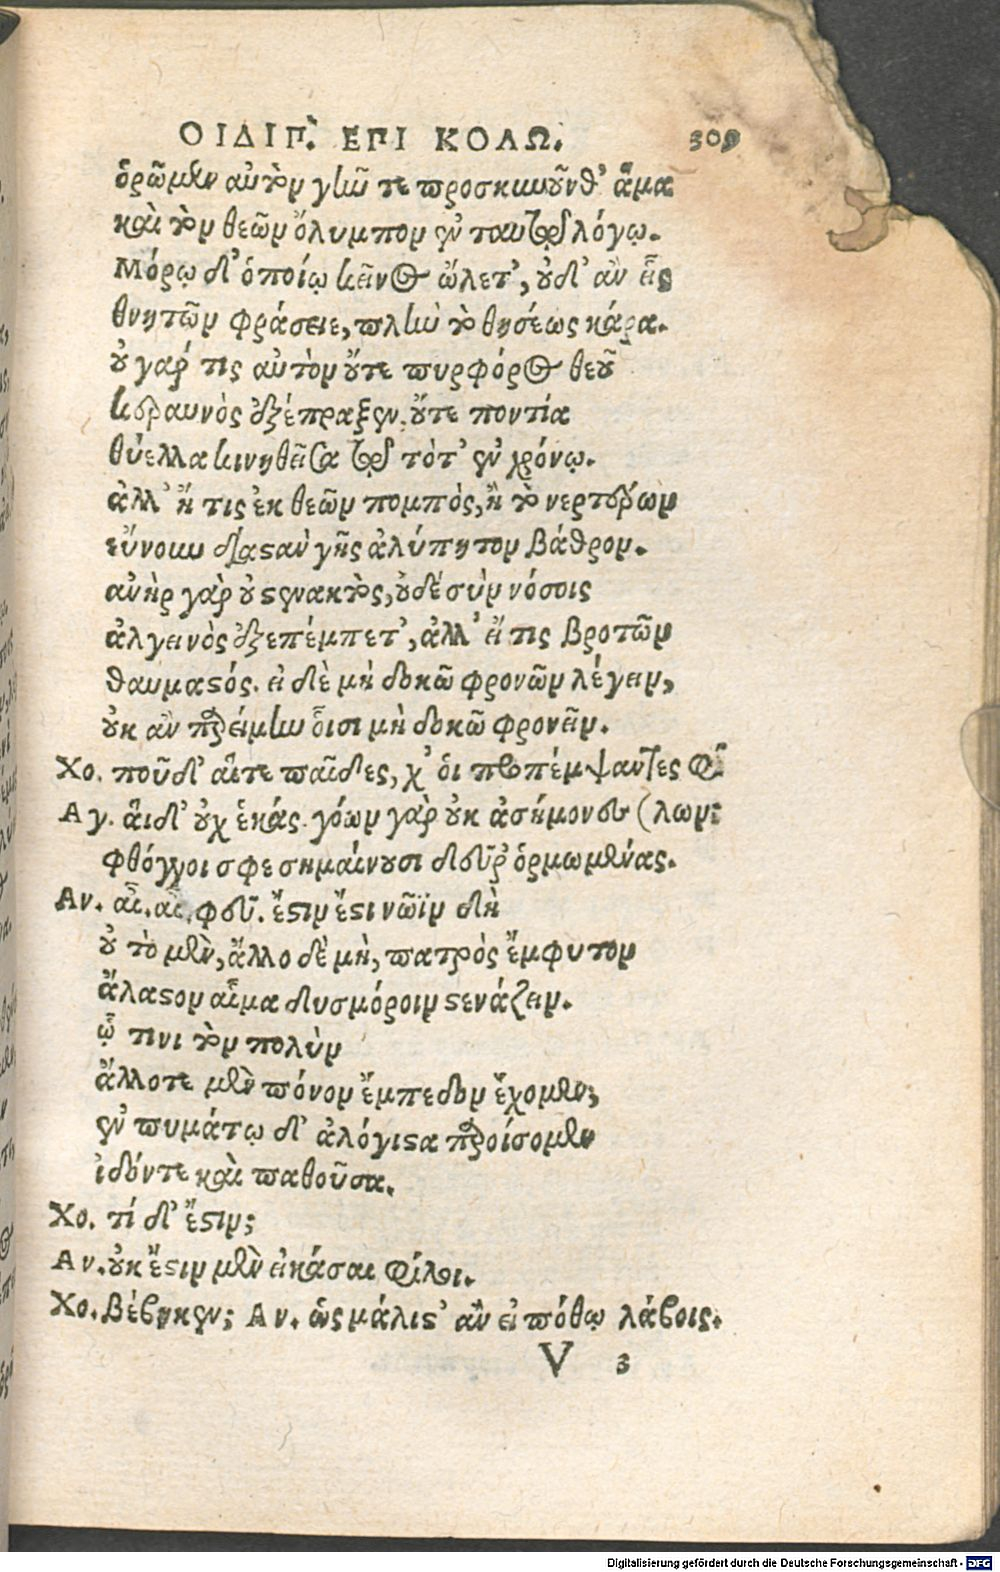 ΟΙΔΙΠ. ΕΠΙ ΚΟΛΩ. 309
ὁρῶμεν αὐτὸν γῆν τε προσκυνοῦνθ' ἅμα
καὶ τὸν θεῶν ὄλυμπον ἐν ταυτῷ λόγῳ.
Μόρῳ δ' ὁποίῳ κεῖνος ὤλετ', οὐδ' ἂν εἷς
θνητῶν φράσειε, πλὴν τὸ θησέως κάρα.
οὐ γάρ τις αὐτὸν οὔτε πυρφόρος θεοῦ
κεραυνὸς ἐξέπραξεν. οὔτε ποντία
θύελλα κινηθεῖσα τῷ τότ' ἐν χρόνῳ.
ἀλλ' ἤ τις ἐκ θεῶν πομπὸς, ἢ τὸ νερτέρων
εὔνουν διαστὰν γῆς ἀλύπητον βάθρον.
ἀνὴρ γὰρ οὐ στενακτὸς, οὐδὲ σὺν νόσοις
ἀλγεινὸς ἐξεπέμπετ', ἀλλ' εἴ τις βροτῶν
θαυμαστός. εἰ δὲ μὴ δοκῶ φρονῶν λέγειν,
οὐκ ἂν παρείμην οἷσι μὴ δοκῶ φρονεῖν.
Χο. ποῦ δ' αἵτε παῖδες, χ' οἱ προπέμψαντες φί
Αγ. αἵδ' οὐχ ἑκάς. γόων γὰρ οὐκ ἀσήμονες (λων;
φθόγγοι σφε σημαίνουσι δεῦρ' ὁρμωμένας.
Αν. αἶ. αἶ. φεῦ. ἔστιν ἔστι νῶϊν δὴ
οὐ τὸ μὲν, ἄλλο δὲ μὴ, πατρὸς ἔμφυτον
ἄλαστον αἷμα δυσμόροιν στενάζειν.
ᾧ τινι τὸν πολὺν
ἄλλοτε μὲν πόνον ἔμπεδον ἔχομεν;
ἐν πυμάτῳ δ' ἀλόγιστα παροίσομεν
ἰδόντε καὶ παθοῦσα.
Χο. τί δ' ἔστιν;
Αν. οὐκ ἔστιν μὲν εἰκάσαι φίλοι.
Χο. Βέβηκεν; Αν. ὡς μάλιστ' ἂν εἰ πόθῳ λάβοις.
V 3
Digitalisierung gefördert durch die Deutsche Forschungsgemeinschaft - DFG